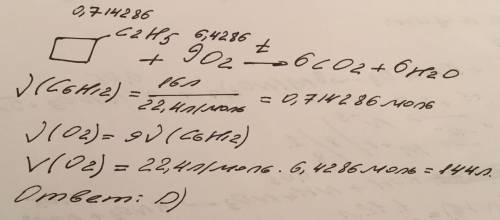 0,714286
C2H5 6,4286
+ 9O2 t → 6CO2 + 6H2O
√(C6H12) = 16л / 22,4л/моль = 0,714286 моль
√(O2) = 9√(C6H12)
V(O2) = 22,4л/моль · 6,4286 моль = 144л.
Ответ: D)